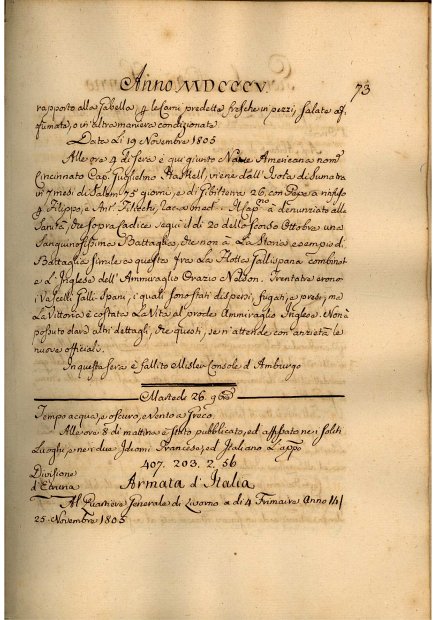 Anno MDCCCV.
73
rapporto alla gabella, p. le carni predette fresche in pezzi, salate af-
fumate, o in altra maniera condizionate
Data li 19 Novembre 1805
Alle ore 4 di sera è quì giunto Nave Americana nom.
Cincinnato Cap. Guglielmo Haskell, viene dall'Isola di Sumatra
in 7 mesi di Salem 75 giorni, e di Gibilterra 26, con Pepe a
p. Filippo, e Ant. Filicchi,
Sanità, che sopra Cadice seguì il dì 20 dello scorso Ottobre una
Sanguinosissima Battaglia, che non à La Storia esempio di
Battaglia simile a questa fra La Flotta Gallispana combinat
e L'Inglese dell'Ammiraglio Orazio Nelson. Trentatre erono
i Vascelli Galli-Spani, i quali sono stati dispersi, fugati, e presi, ma
La Vittoria è costata La Vita al prode Ammiraglio Inglese. Non à
possuto dare altri dettagli, che questi, se n'attende con anzietà le
nuove officiali.
In questa sera è fallito Misler Console d'Amburgo
Martedì 26. 9bre
Tempo acqua, e oscuro, e vento a Greco.
Alle ore 8 di mattina è stato pubblicato, ed affissato ne i soliti
Luoghi, e ne i due Idiomi Francese, ed Italiano L'app.o
407. 203. 2. 56
Divisione
d'Etruria
Armata d'Italia
Al Quartiere Generale di Livorno a dì 4 Frimaire Anno 14/
25. Novembre 1805